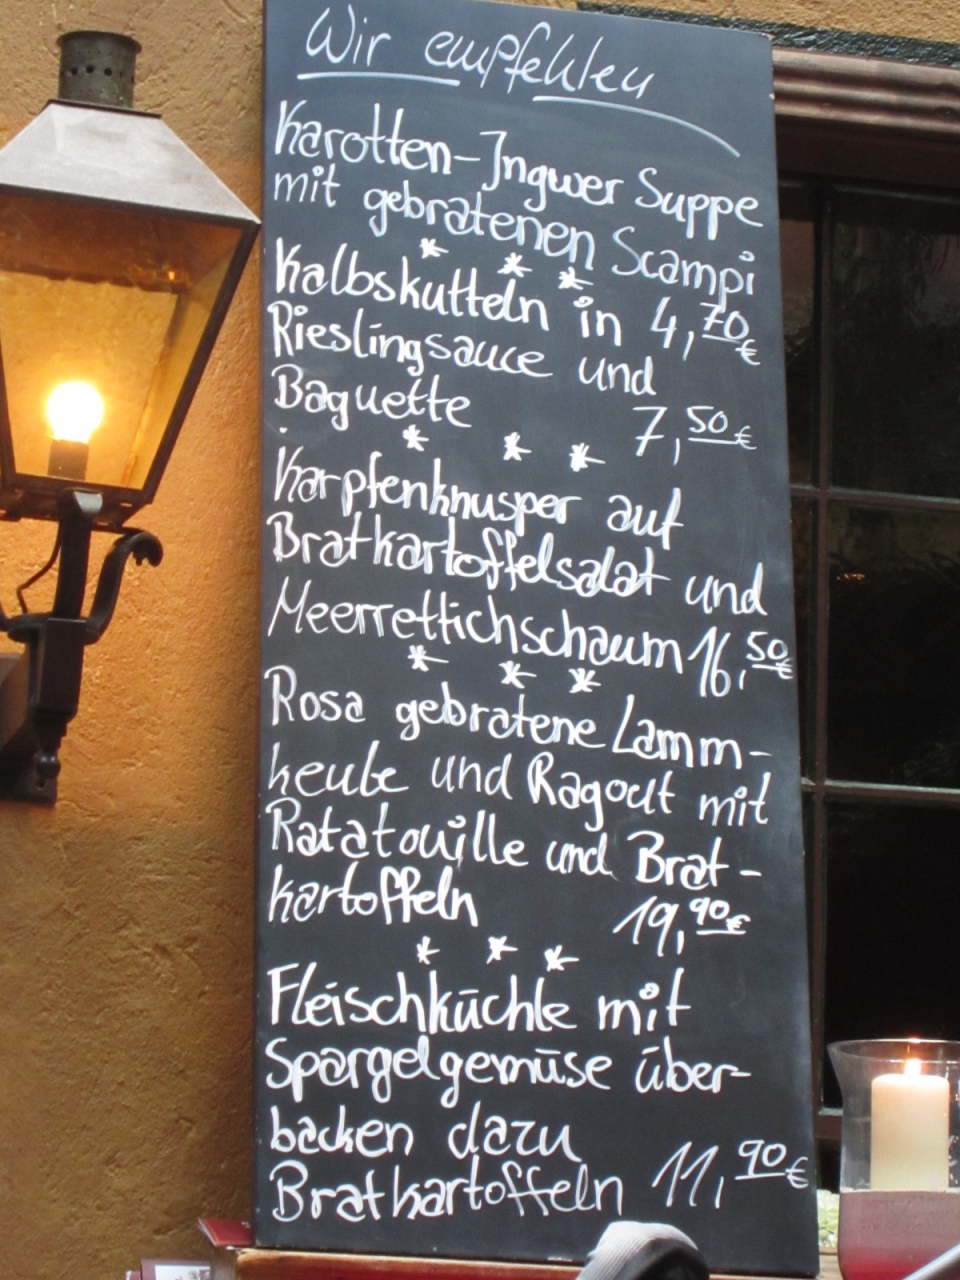 Wir empfehlen
Karotten-Ingwer Suppe
mit gebratenen Scampi
* * *
4,70 €
Kalbskutteln in
Rieslingsauce und
Baguette 7,50 €
* * *
Karpfenknusper auf
Bratkartoffelsalat und
Meerrettichschaum 16,50 €
* * *
Rosa gebratene Lamm-
keule und Ragout mit
Ratatouille und Brat-
kartoffeln 19,90 €
* * *
Fleischküchle mit
Spargelgemüse über-
backen dazu
Bratkartoffeln 11,90 €